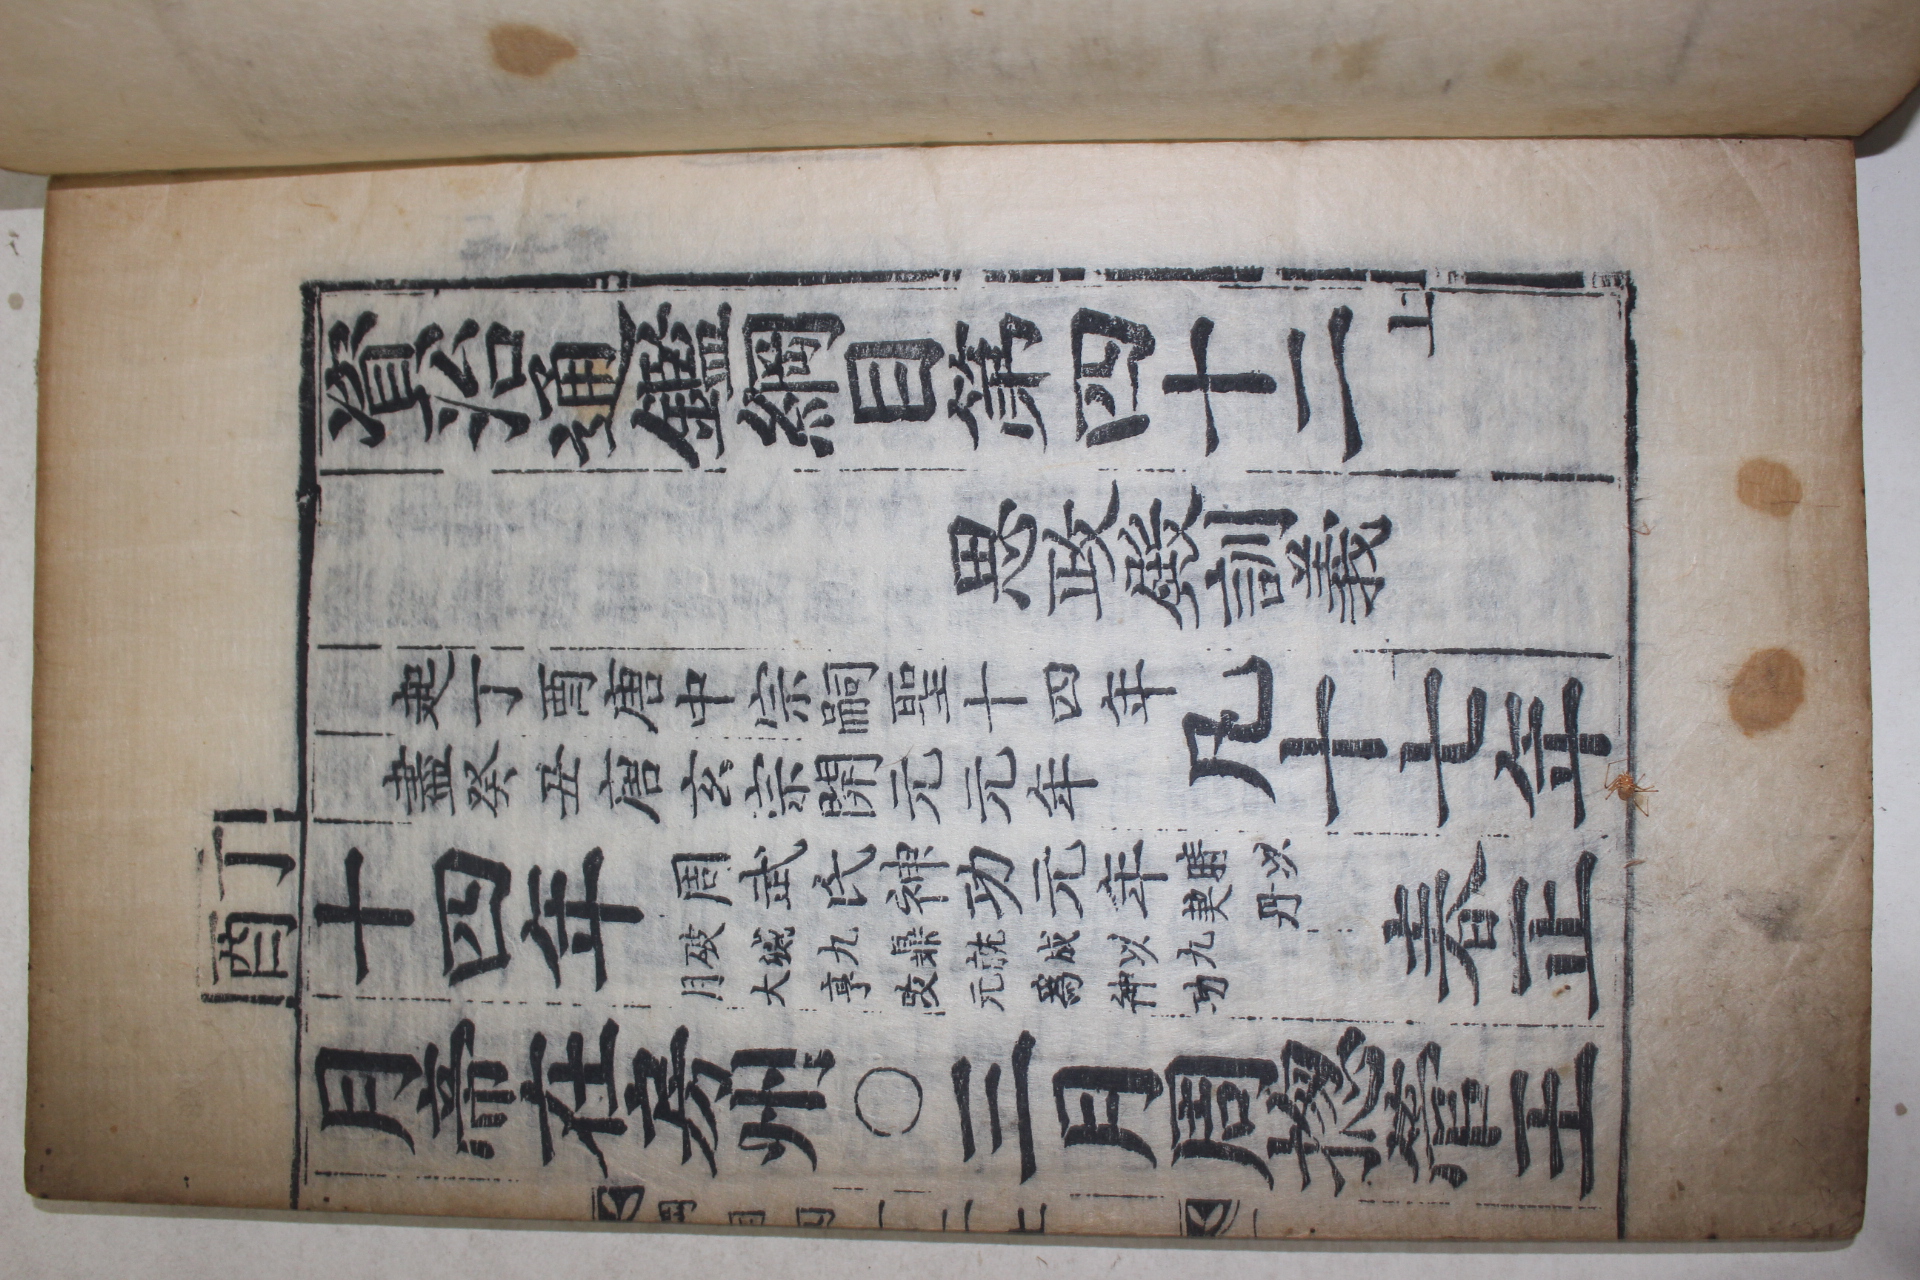 資治通鑑綱目第四十二上
思政殿訓義
起丁酉唐中宗嗣聖十四年
盡癸丑唐玄宗開元元年
凡十七年
丁酉
十四年
周武氏神功元年
時以
契丹
破滅九鼎就成以九
月大享改元爲神功
春正
月帝在房州〇三月周摠管王